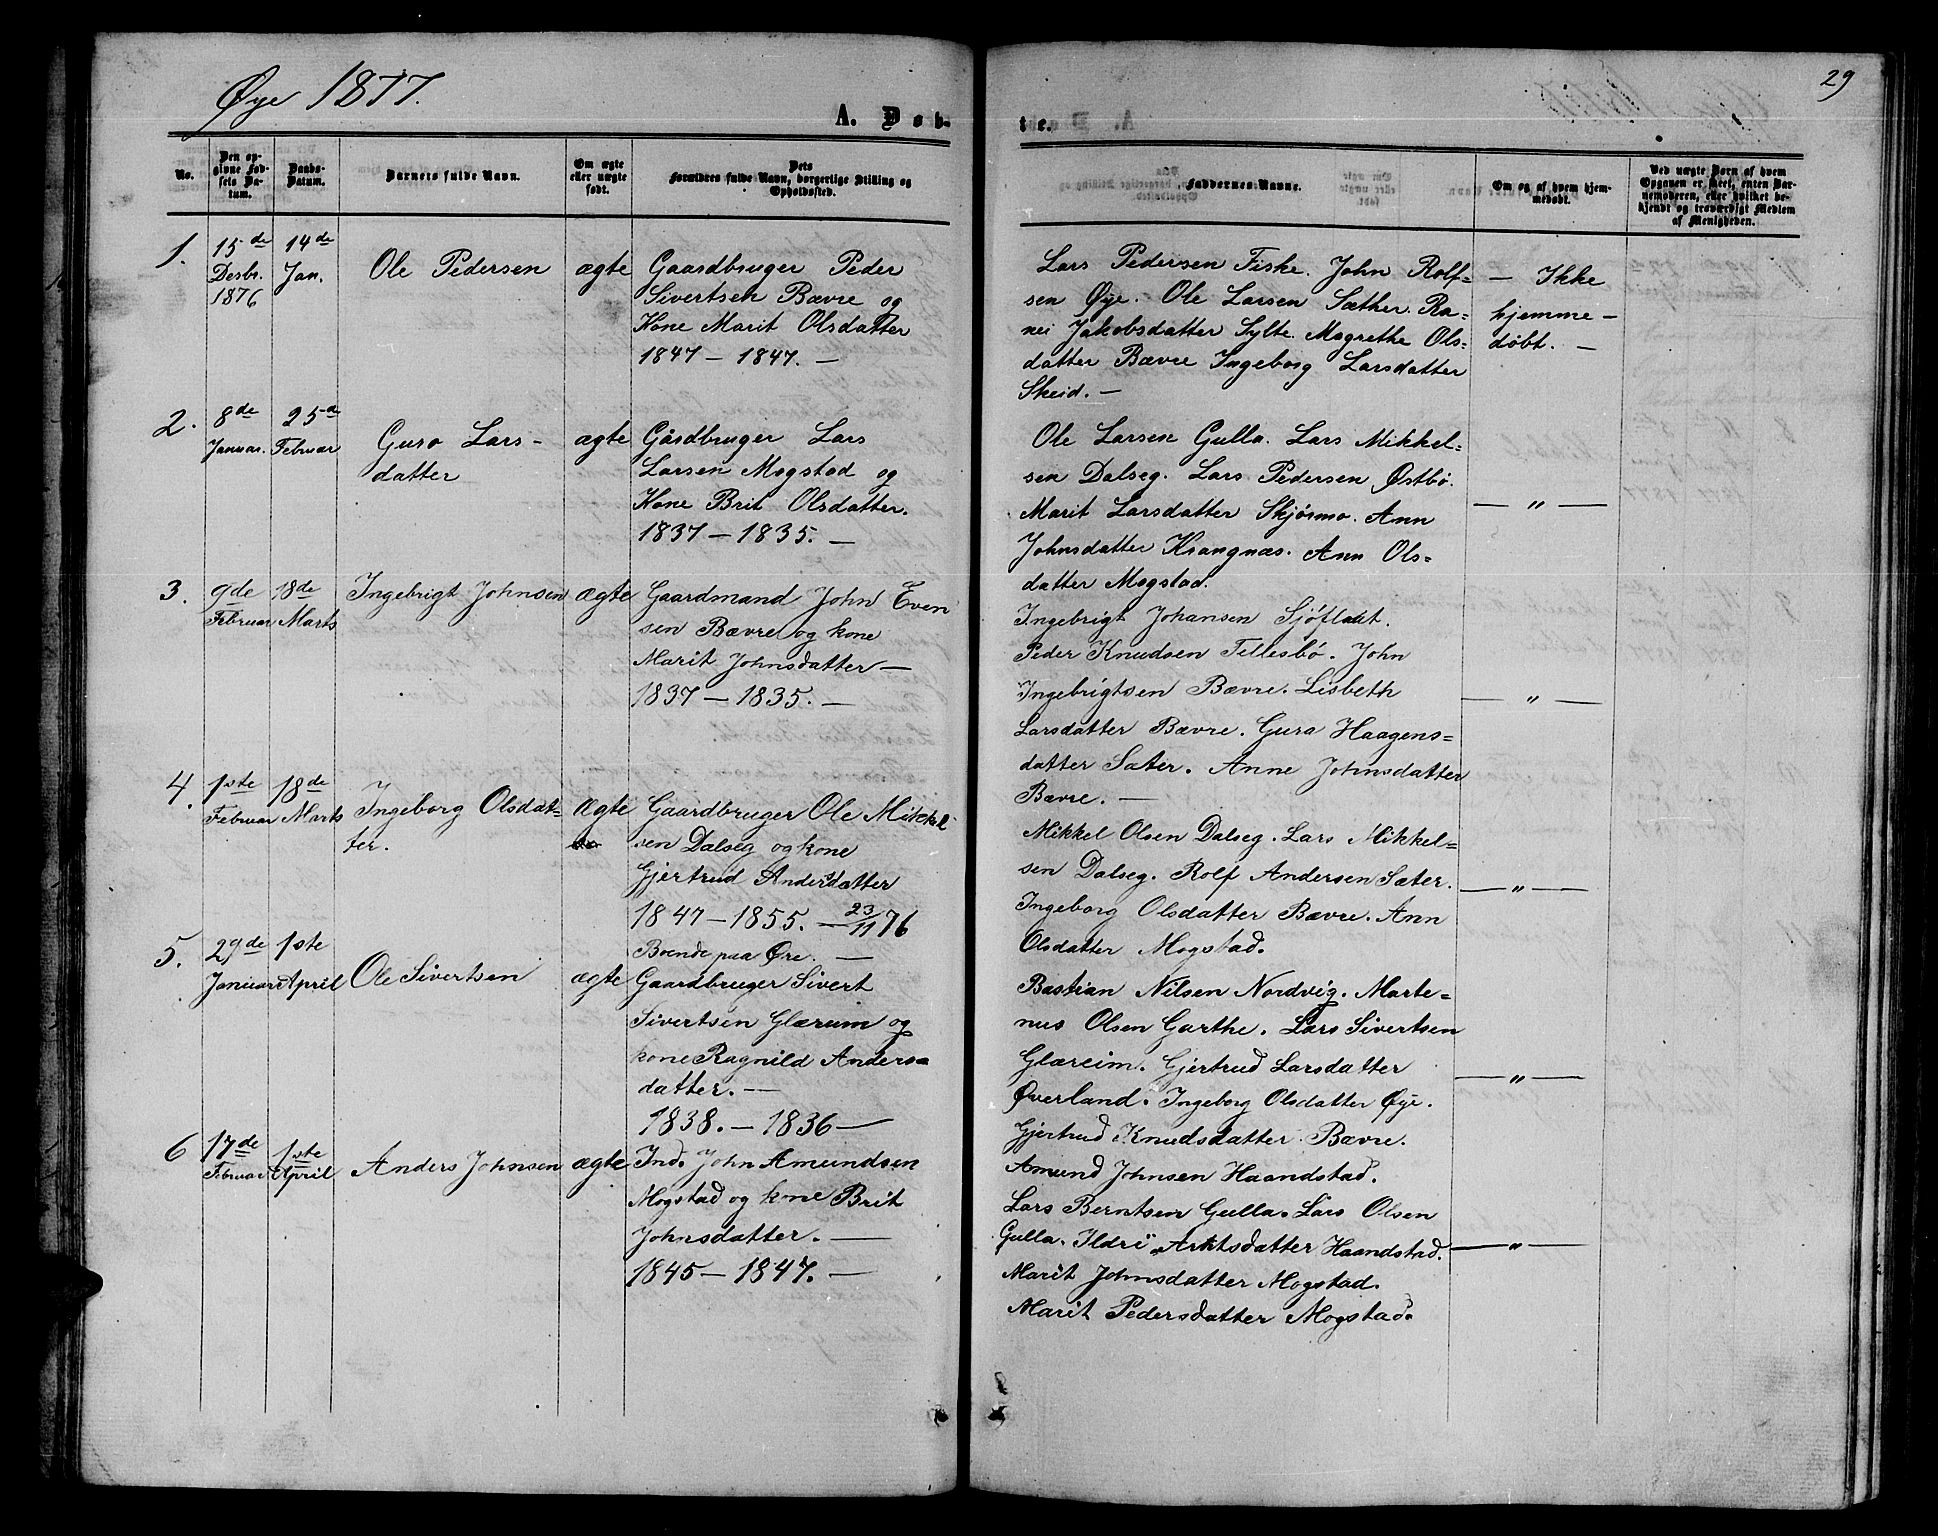 Øye 1877.
29
A. Døb-
te.
No.
Den op-
givne Fød-
sels Da-
tum.
Daabs-
Datum.
Barnets fulde Navn.
Om ægte
eller uægte
født.
Dets
Forældres fulde Navn, borgerlige Stilling og
Opholdssted.
Faddernes Navne.
Om og af hvem hjem-
medøbt.
Ved uægte Børn af hvem
Opgaven er skeet, enten Bar-
nemoderen, eller hvilket be-
kjendt og troværdigt Medlem
af Menigheden.
1.
15de
Desbr.
1876
14de
Jan.
Ole Pedersen
ægte
Gaardbruger Peder
Sivertsen Bævre og
Kone Marit Olsdatter
1847 - 1847. -
Lars Pedersen Fiske. John Rolf=
sen Øye. Ole Larsen Sæther. Ra=
nei Jakobsdatter Sylte. Magrethe Ols=
datter Bævre Ingeborg Larsdatter
Skeid. -
- Ikke
hjemme -
døbt. -
2.
8de
Januar.
25de
Februar
Guro Lars -
datter
ægte
Gårdbruger Lars
Larsen Mogstad og
Kone Brit Olsdatter.
1837 - 1835. -
Ole Larsen Gulla. Lars Mikkel=
sen Dalseg. Lars Pedersen Østbö.
Marit Larsdatter Skjörmo. Ann
Johnsdatter Krangnæs. Ann Ols=
datter Mogstad.
- " -
3.
9de
Februar
18de
Marts
Ingebrigt Johnsen
ægte
Gaardmand John Even
sen Bævre og kone
Marit Johnsdatter -
1837 - 1835. -
Ingebrigt Johansen Sjöflaat.
Peder Knudsen Tellesbö. John
Ingebrigtsen Bævre. Lisbeth
Larsdatter Bævre. Gura Haagens=
datter Sæter. Anne Johnsdatter
Bævre. -
- " -
4.
1ste
Februar
18de
Marts
Ingeborg Olsdat=
ter.
ægte
Gaardbruger Ole Mikkel
sen Dalseg og kone
Gjertrud Andersdatter
1847 - 1855. - 23/11 76
Boende paa Øre. -
Mikkel Olsen Dalseg. Lars Mikkel=
sen Dalseg. Rolf Andersen Sæter.
Ingeborg Olsdatter Bævre. Ann
Olsdatter Mogstad.
- " -
5.
29de
Januar
1ste
April
Ole Sivertsen
ægte
Gaardbruger Sivert
Sivertsen Glærum og
kone Ragnild Anders=
datter. -
1838. - 1836 -
Bastian Nilsen Nordvig. Marte=
nus Olsen Garthe. Lars Sivertsen
Glæreim. Gjertrud Larsdatter
Øverland. Ingeborg Olsdatter Øye.
Gjertrud Knudsdatter Bævre.
- " -
6
17de
Februar
1ste
April
Anders Johnsen
ægte
Ind. John Amundsen
Mogstad og kone Brit
Johnsdatter. -
1845 - 1847. -
Amund Johnsen Haandstad.
Lars Berntsen Gulla. Lars Olsen
Gulla. Ildri Arntsdatter Haandstad.
Marit Johnsdatter Mogstad.
Marit Pedersdatter Mogstad.
- " -